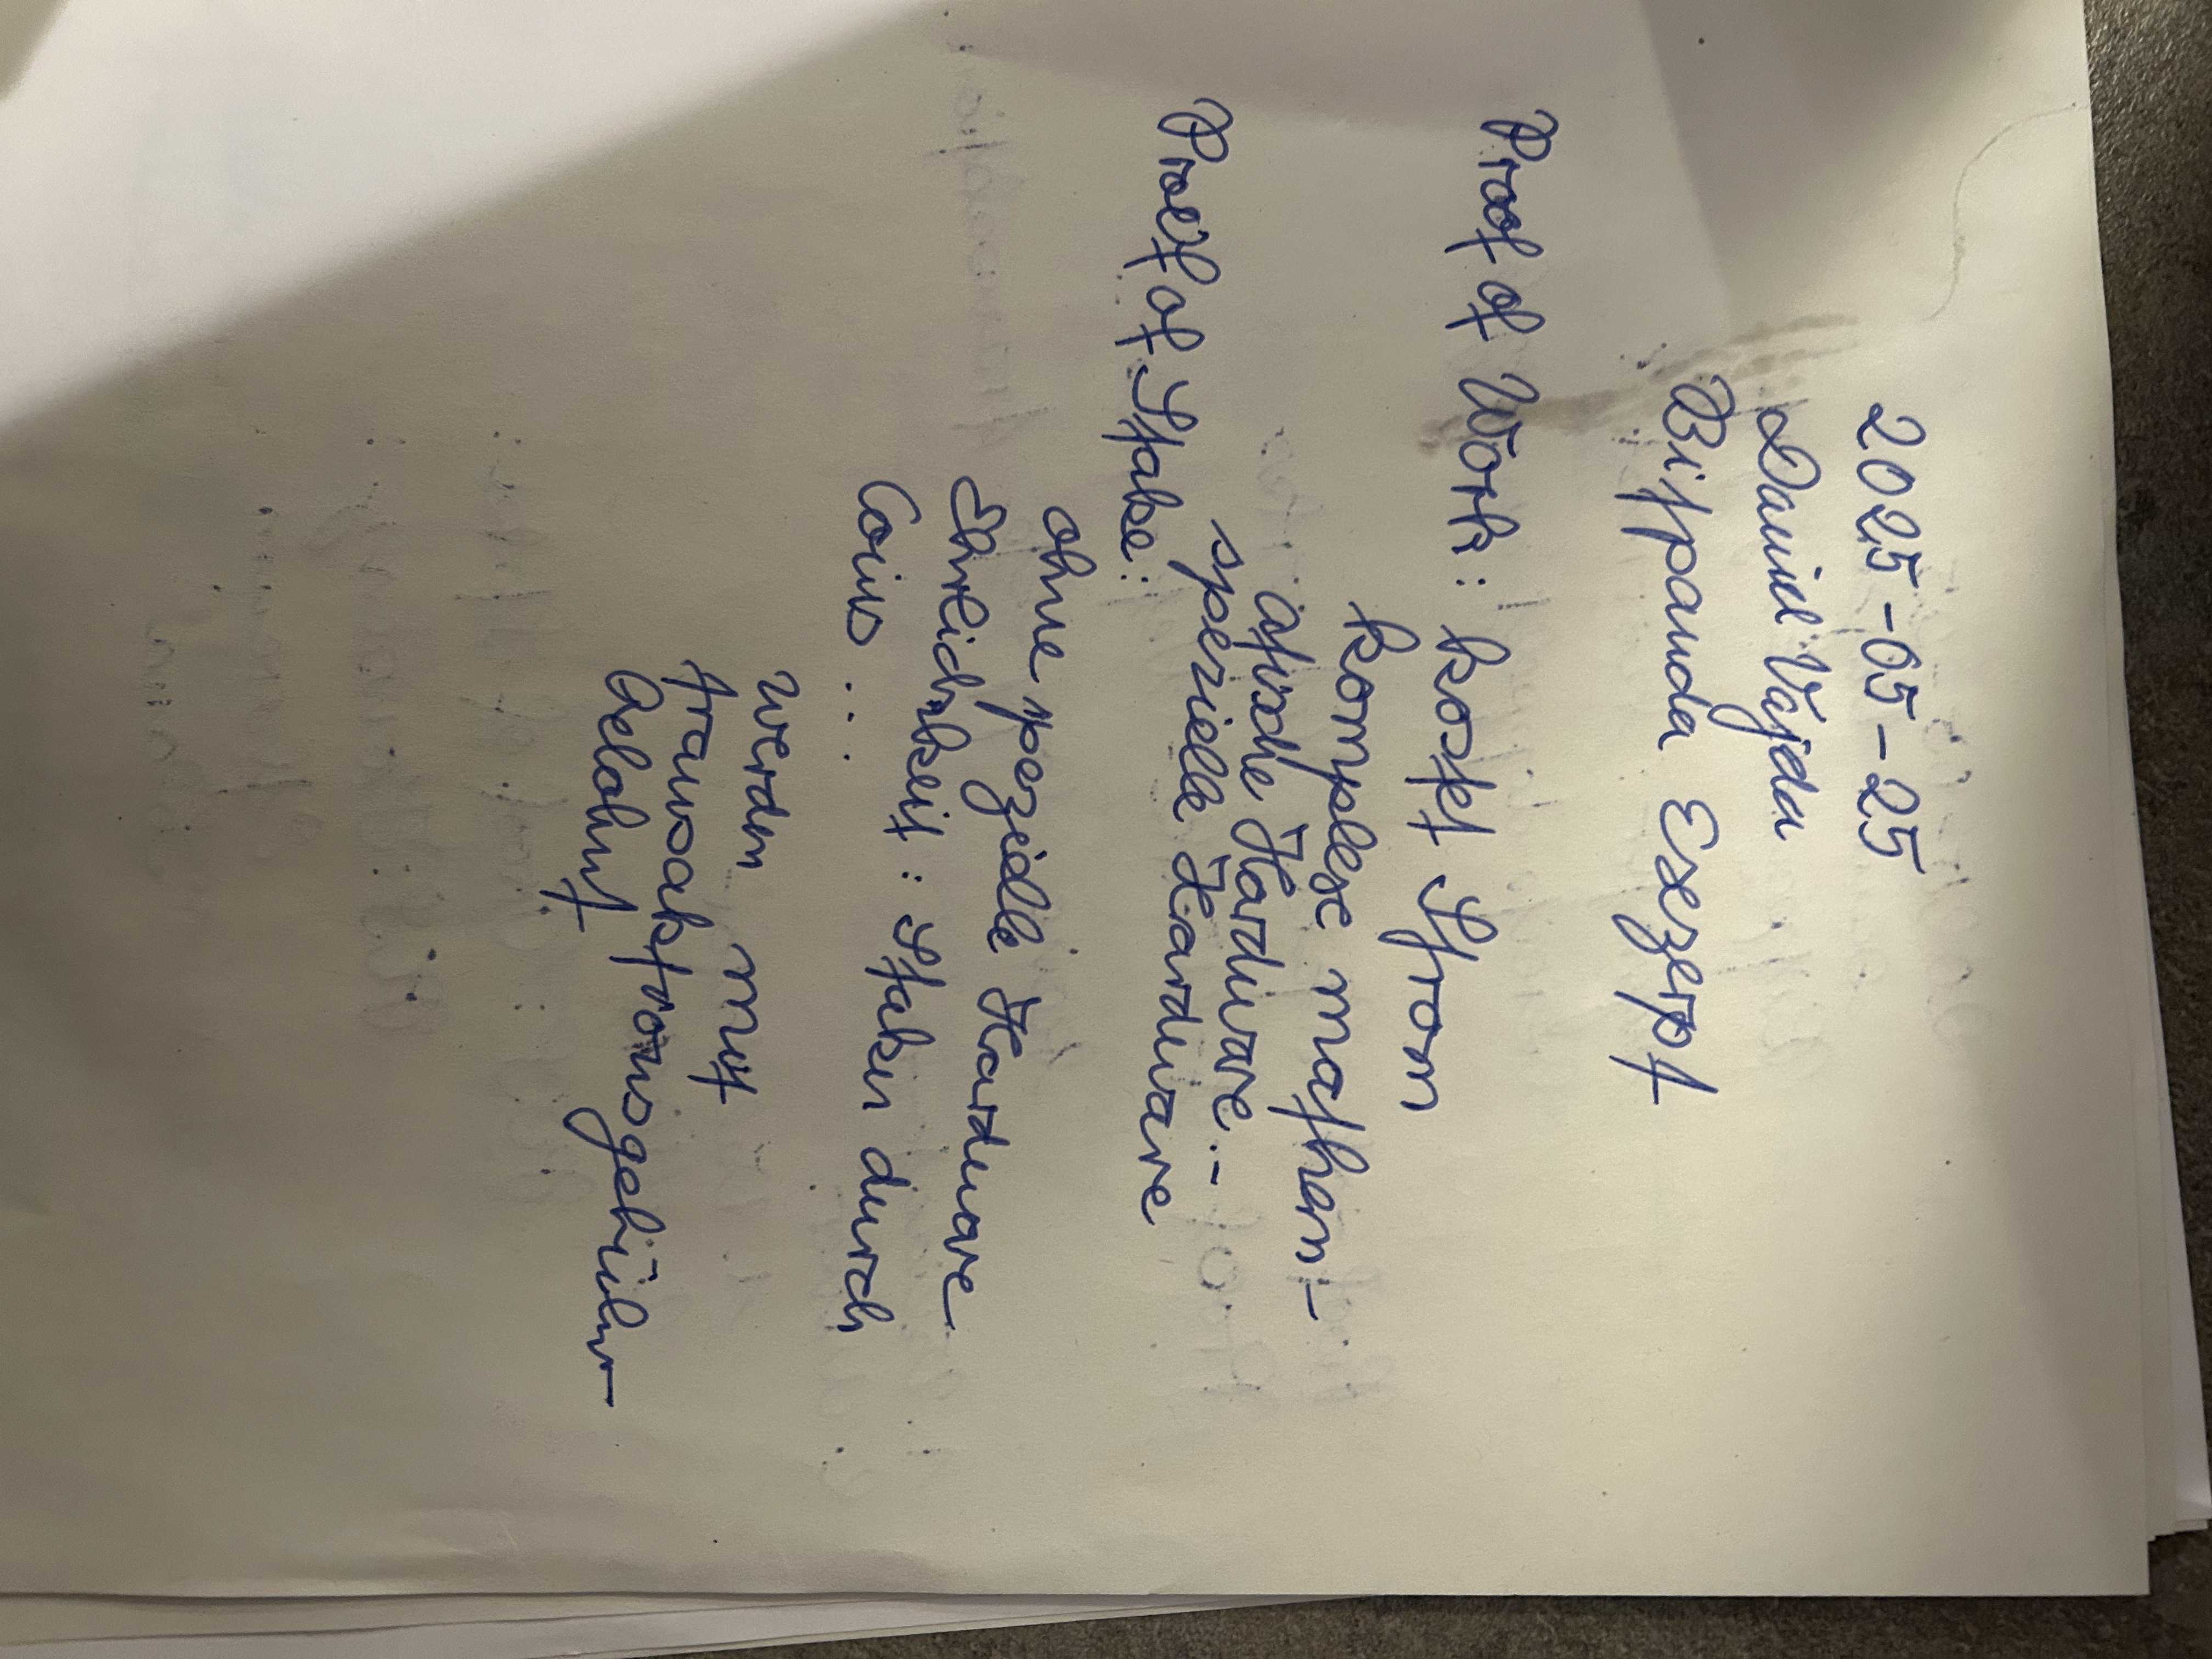 2025-05-25
Daniel Vajda
Bitpanda Exzerpt
Proof of Work: kost Strom
komplexe mathem-
atische Hardware -
spezielle Hardware
Proof of Stake:
ohne pezielle Hardware
: Staken durch
Coins ...
werdn mit
transaktionsgebühr
Gelohnt